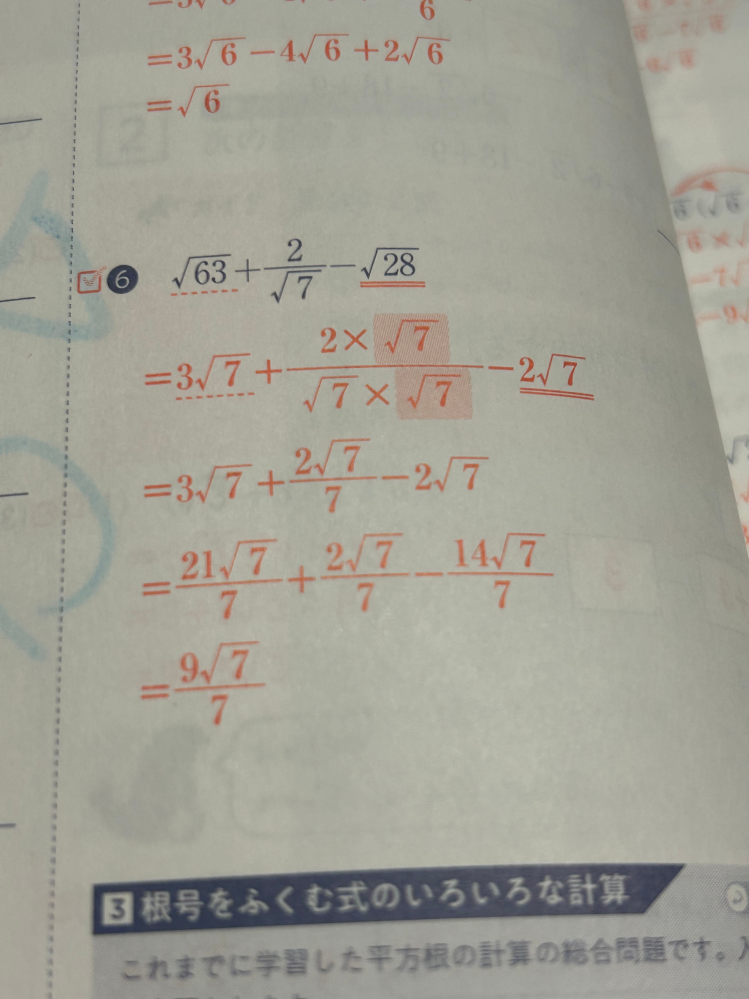 =3√6−4√6+2√6
=√6
6 √63+2/√7−√28
=3√7+(2×√7)/(√7×√7)−2√7
=3√7+2√7/7−2√7
=21√7/7+2√7/7−14√7/7
=9√7/7
3 根号をふくむ式のいろいろな計算
これまでに学習した平方根の計算の総合問題です。